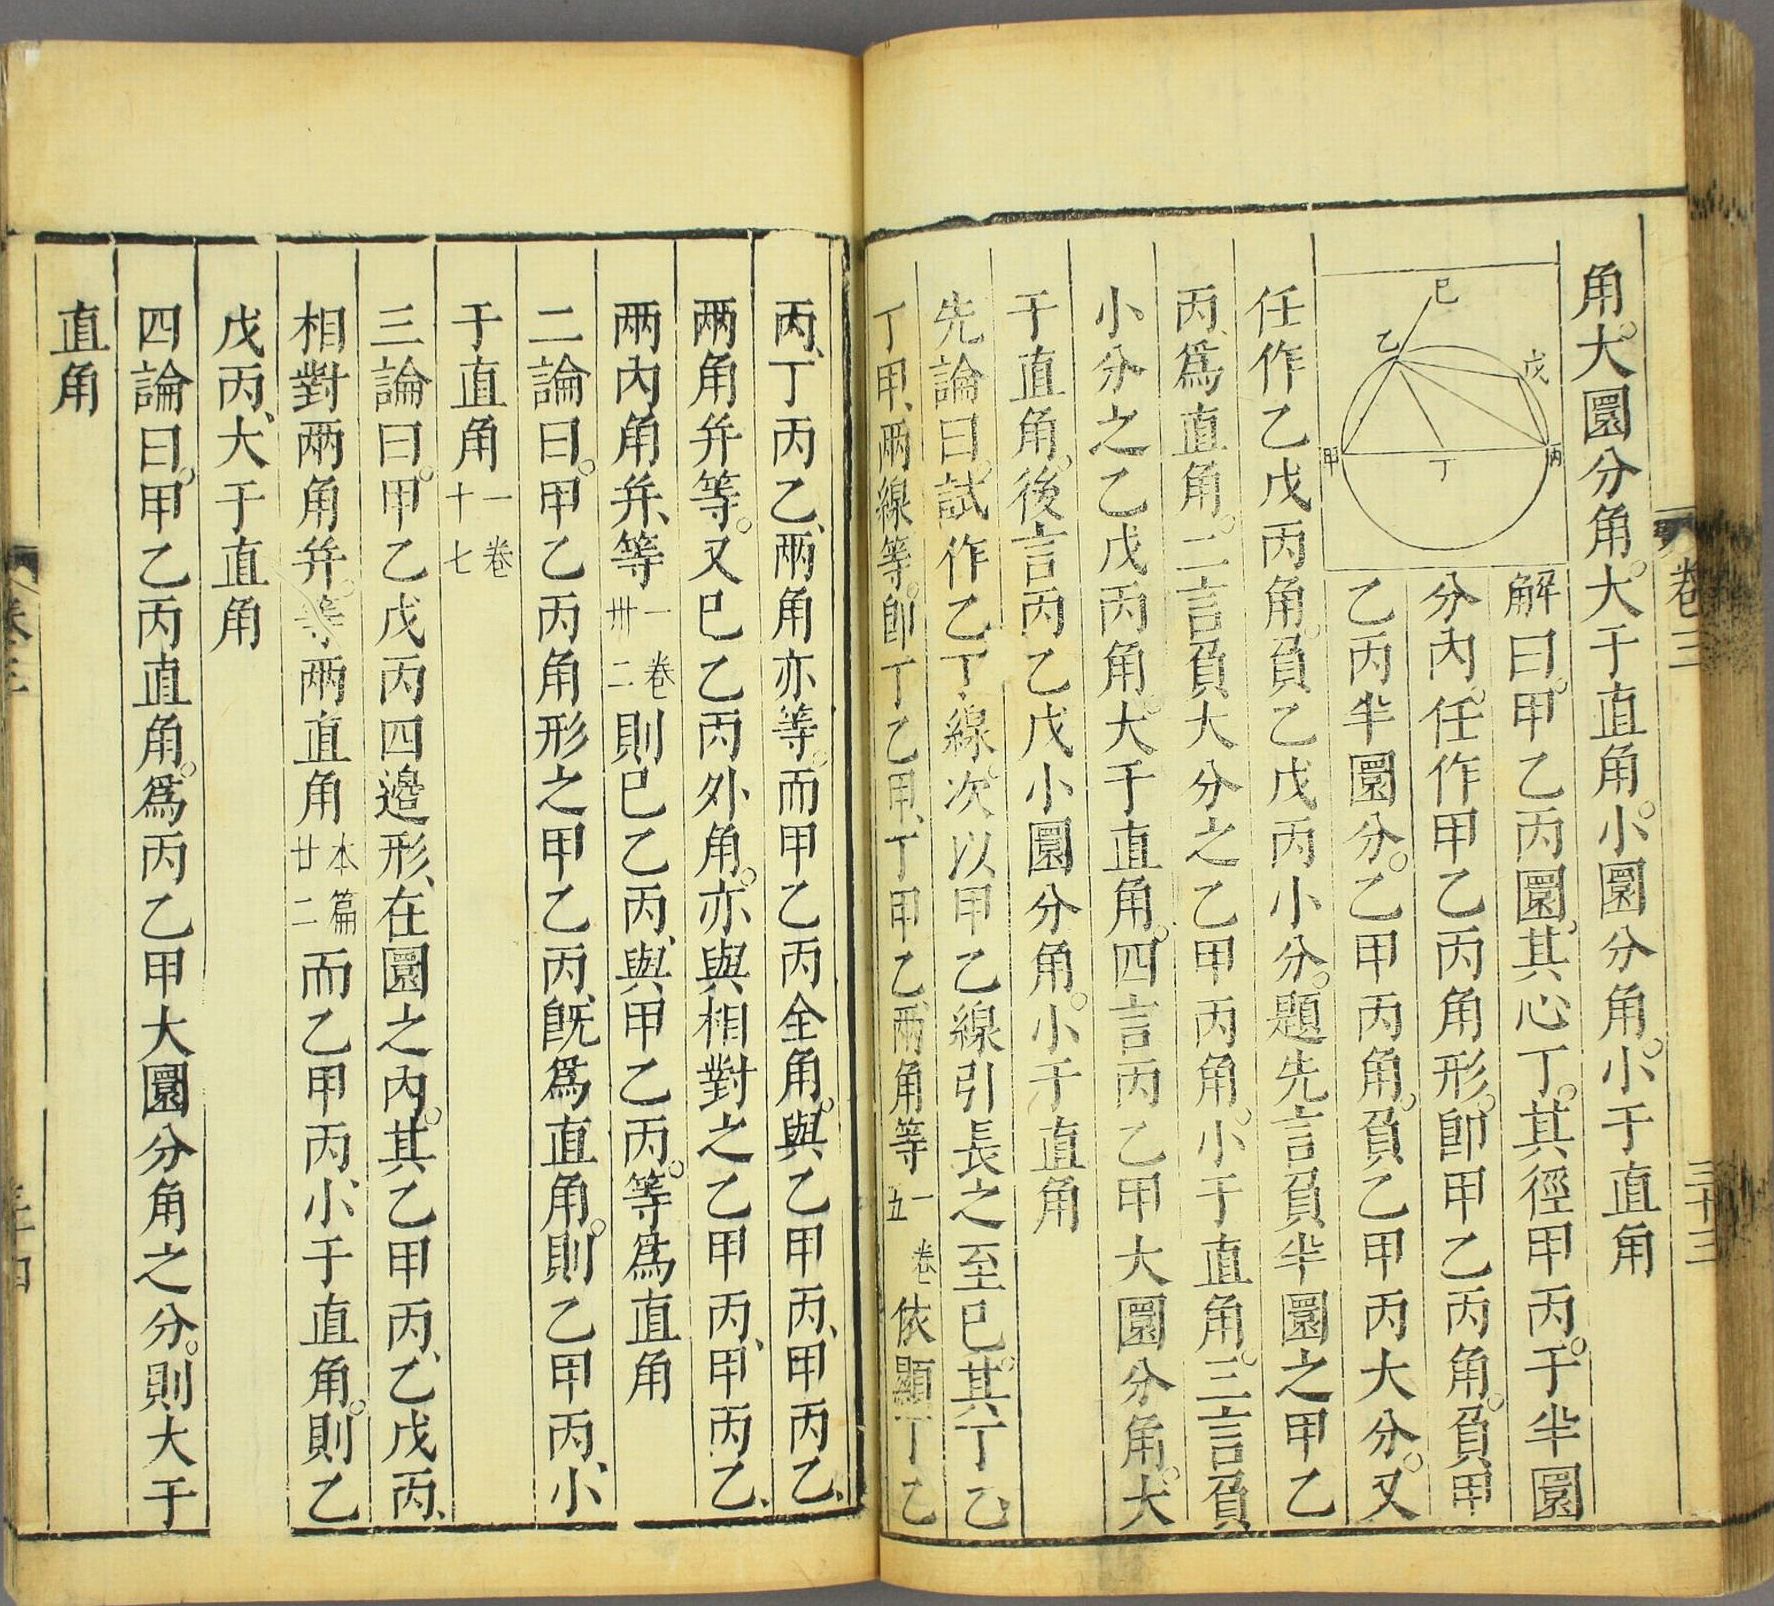 卷三
三十三
角。大圜分角。大于直角。小圜分角。小于直角
已
乙
戊
甲
丁
丙
解曰。甲乙丙圜。其心丁。其徑甲丙。于半圜
分內。任作甲乙丙角形。卽甲乙丙角。負甲
乙丙半圜分。乙甲丙角。負乙甲丙大分。又
任作乙戊丙角。負乙戊丙小分。題先言負半圜之甲乙
丙、爲直角。二言負大分之乙甲丙角。小于直角。三言負
小分之乙戊丙角。大于直角。四言丙乙甲大圜分角。大
于直角。後言丙乙戊小圜分角。小于直角
先論曰。試作乙丁線。次以甲乙線引長之至已。其丁乙
丁甲、兩線等。卽丁乙甲、丁甲乙、兩角等一卷五依顯丁乙
丙、丁丙乙、兩角亦等。而甲乙丙全角。與乙甲丙、甲丙乙、
兩角幷等。又已乙丙外角。亦與相對之乙甲丙、甲丙乙、
兩內角幷、等一卷卅二則已乙丙、與甲乙丙。等爲直角
二論曰。甲乙丙角形之甲乙丙、旣爲直角。則乙甲丙、小
于直角一卷十七
三論曰。甲乙戊丙四邊形、在圜之內。其乙甲丙、乙戊丙、
相對兩角幷。等兩直角本篇廿二而乙甲丙、小于直角。則乙
戊丙、大于直角
四論曰。甲乙丙直角。爲丙乙甲大圜分角之分。則大于
直角
卷三